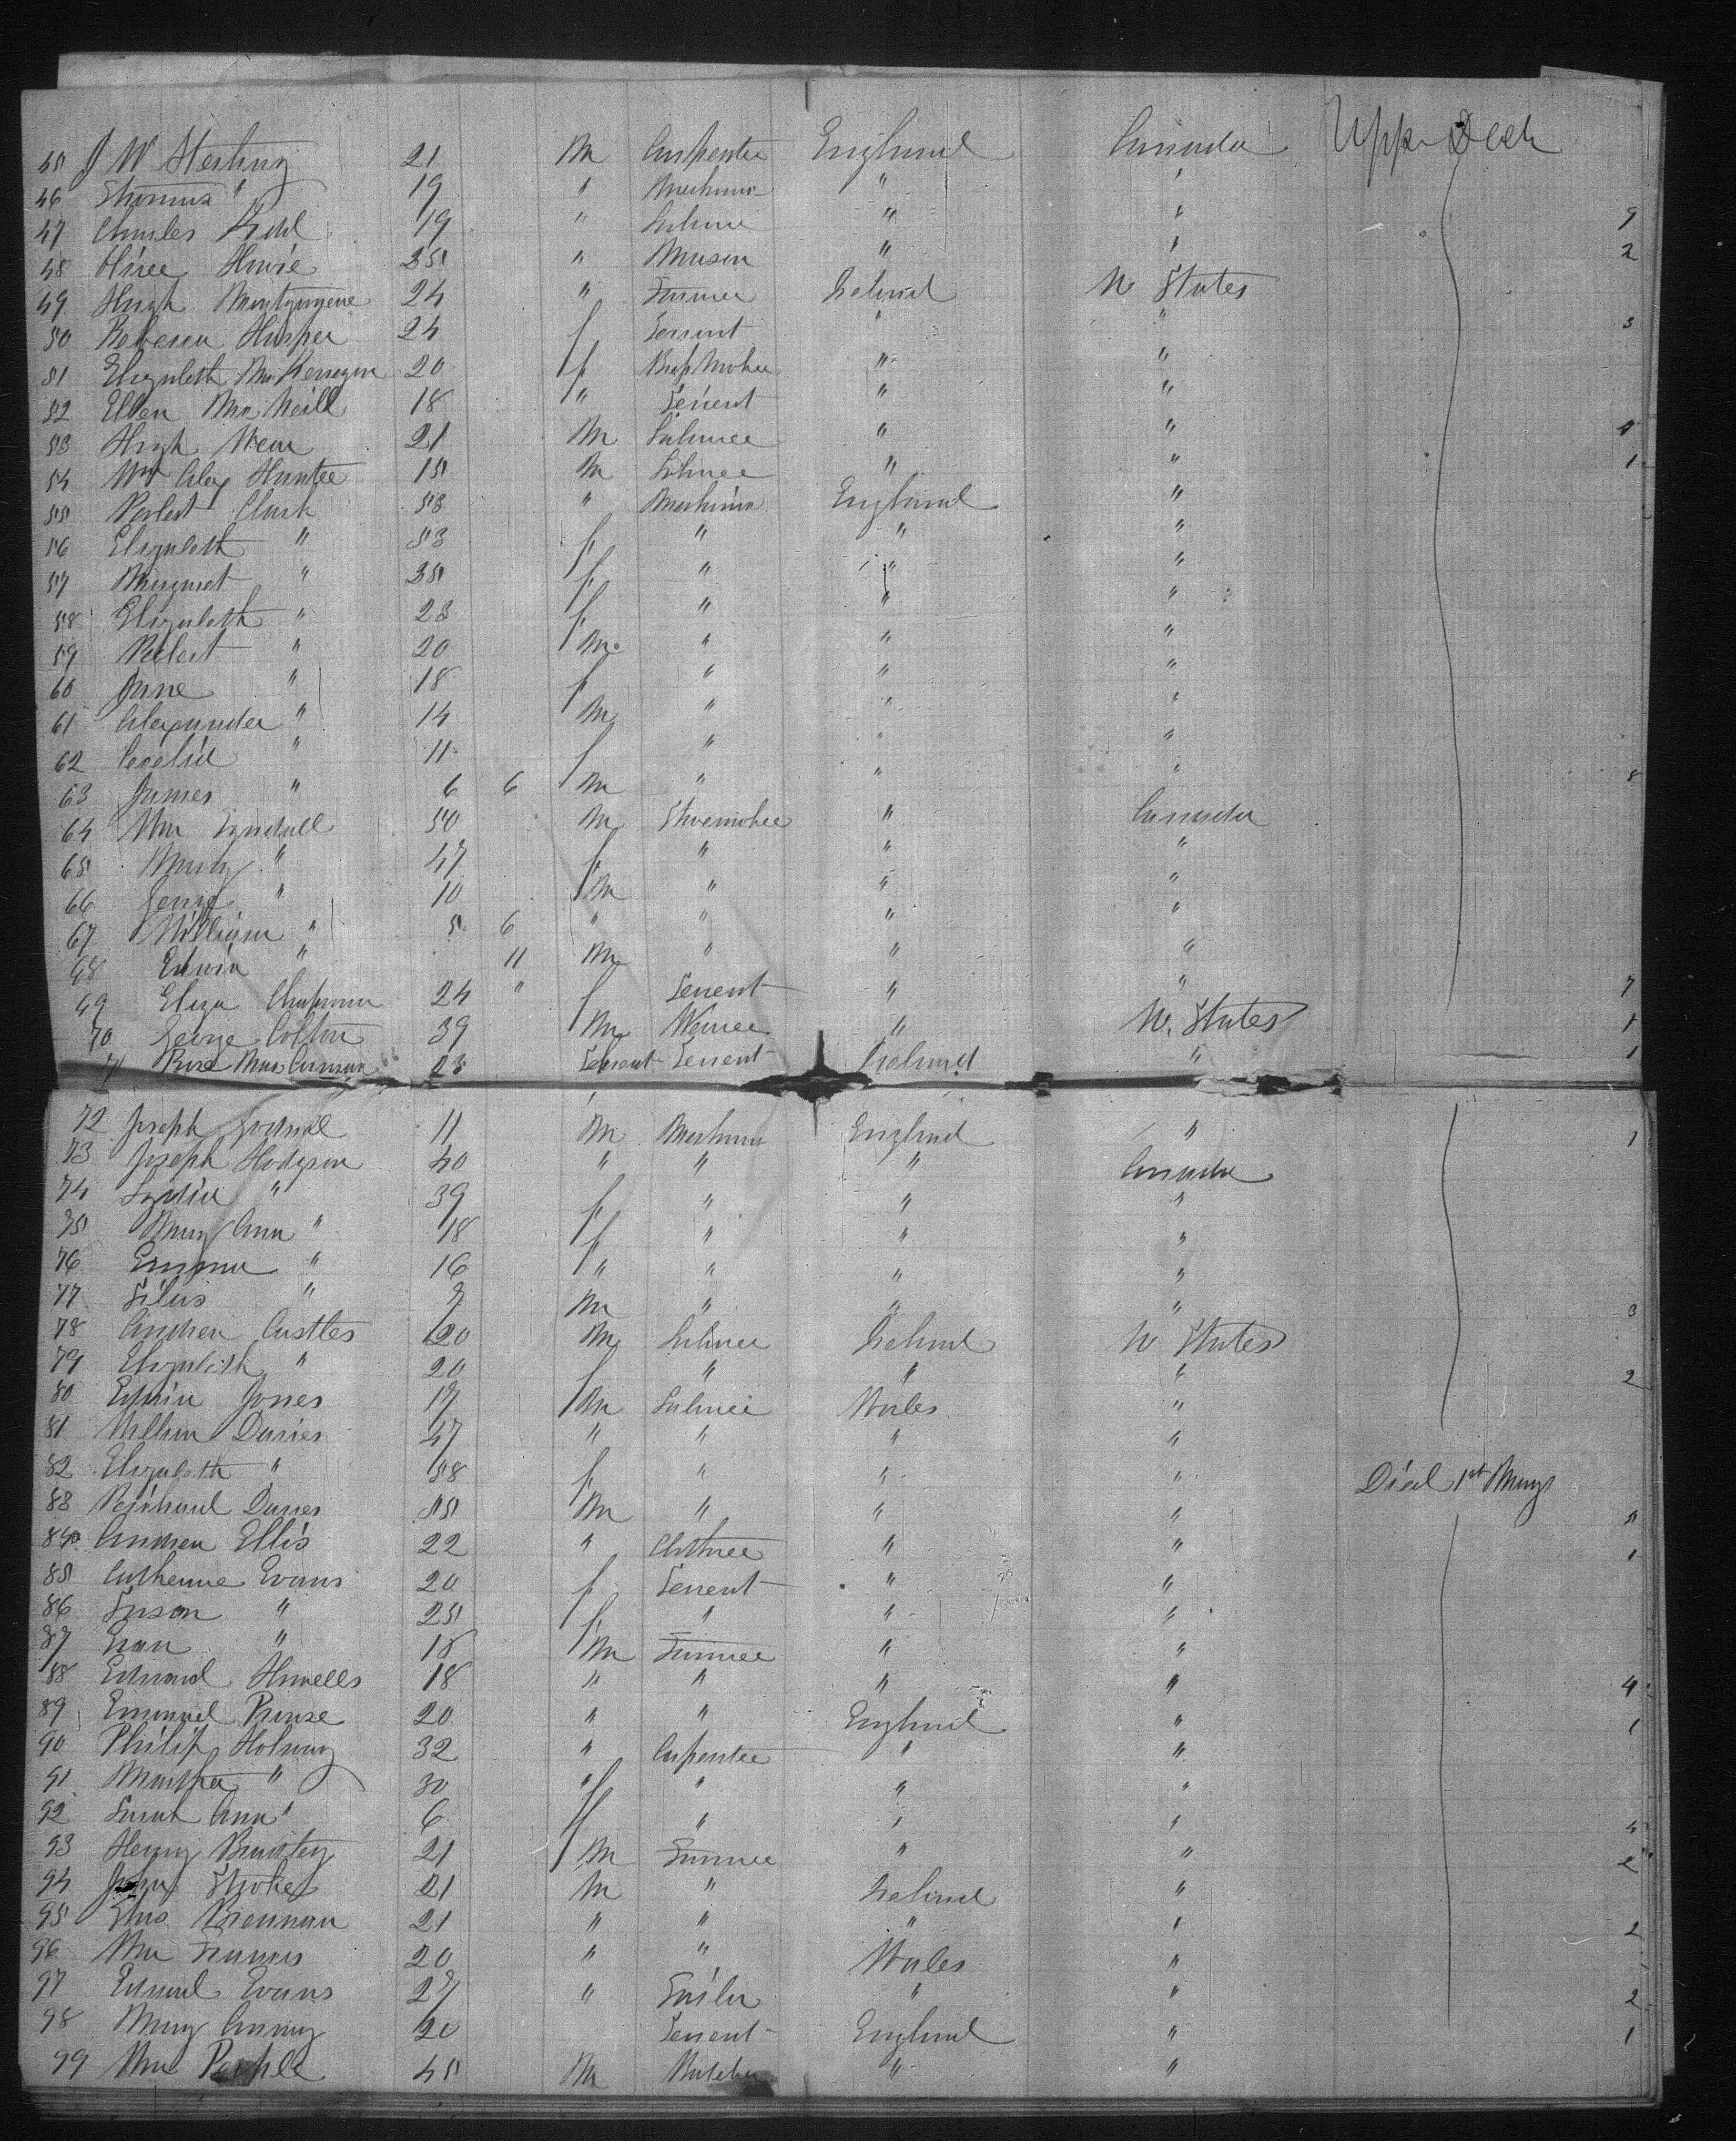 45 J W Sterling 21 M Carpenter England Canada Upper Deck
46 Thomas " 19 " Mechanic " "
47 Charles 19 " Labourer " " 9
48 35 " Mason " " 2
49 Hugh Montgomerie 24 " Farmer Ireland U States
50 Rebecca Harper 24 f Servant " " 3
51 Elizabeth 20 f " "
52 Ellen McNeill 18 " Servent " "
53 Hugh Weir 21 M Labourer " " 4
54 Wm Alex Hunter 15 M Labourer " " 1
55 Robert Clark 58 " Mechanic England "
56 Elizabeth " 53 f " " "
57 Margaret " 25 f " " "
58 Elizabeth " 23 f " " "
59 Robert " 20 M " " "
60 Jane " 18 f " " "
61 Alexander " 14 M " " "
62 " 11 f " " "
63 James " 6 6 M " " " 8
64 Wm Tyndall 50 M Shoemaker " Canada
65 Mary " 47 f " " "
66 George " 10 M " " "
67 William " 5 6 " " " "
68 Edwin " 11 M " " "
69 Eliza Chapman 24 " f Servent " " 7
70 George Colton 39 M Weaver " U. States 1
71 Rose 23 Servent Servent Ireland " 1
72 Joseph 11 M Mechanic England " 1
73 Joseph Hodgson 40 " " " Canada
74 Lydia " 39 f " " "
75 Mary Ann " 18 f " " "
76 Emma " 16 " " " "
77 Silas " 7 M " " " 3
78 Andrew Castles 20 M Labourer Ireland U States
79 Elizabeth " 20 f " " " 2
80 Edwin Jones 17 M Labourer Wales "
81 William Davies 47 " " " "
82 Elizabeth " 58 f " " " Died 1st May
83 Richard Davies 15 M " " " 5
84 Andrew Ellis 22 " " " 1
85 Catherine Evans 20 f Servent " "
86 Susan " 25 f " " "
87 Evan " 18 M Farmer " "
88 Edward Howells 18 " " " " 4
89 Emanuel 20 " " England " 1
90 Philip Holway 32 " Carpenter " "
91 Martha " 30 f " " "
92 Sarah Ann " 6 f " " "
93 Henry 21 M Farmer " " 2
94 John Stokes 21 M " Ireland "
95 Thos Brennan 21 " " " " 2
96 Wm Francis 20 " " Wales "
97 Edward Evans 27 " Sailor " " 2
98 Mary 20 Servent England " 1
99 Wm 45 M Butcher " "